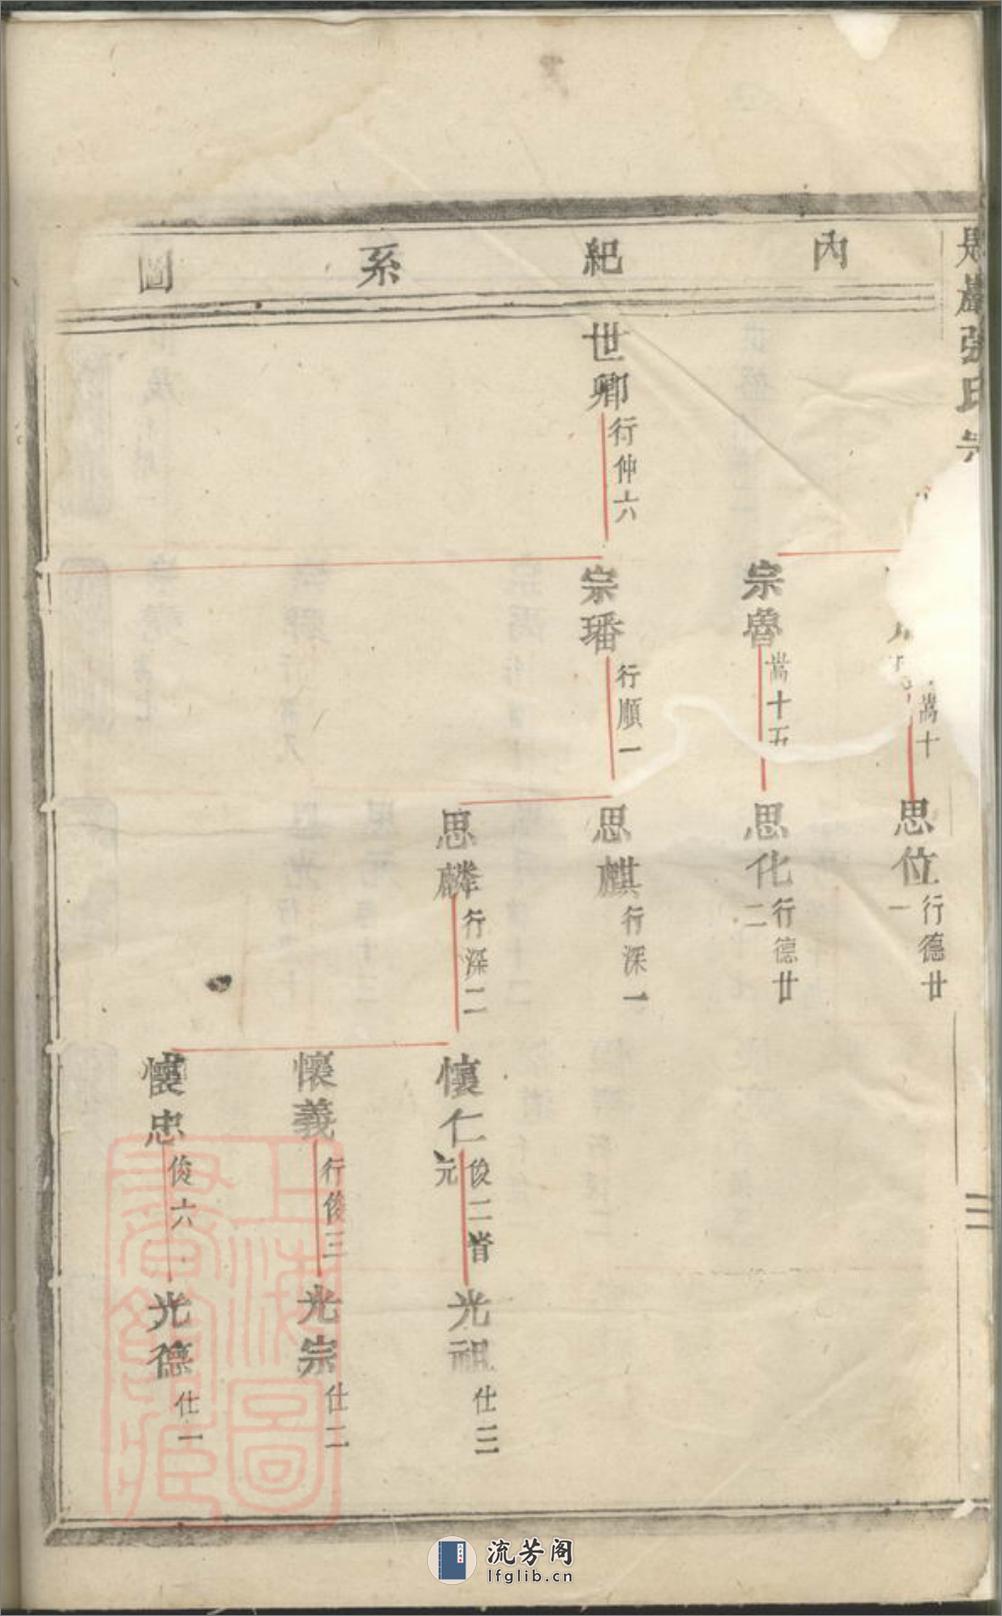 內紀系圖
張氏
嵩十
思位 行德廿一
宗魯 嵩十五
思化 行德廿二
世卿 行仲六
宗璠 行順一
思麒 行深一
思麟 行深二
懷仁 俊二首元
光祖 仕三
懷義 行俊三
光宗 仕二
懷忠 俊六
光德 仕一
三
上海圖書館藏
流芳阁
lfglib.cn